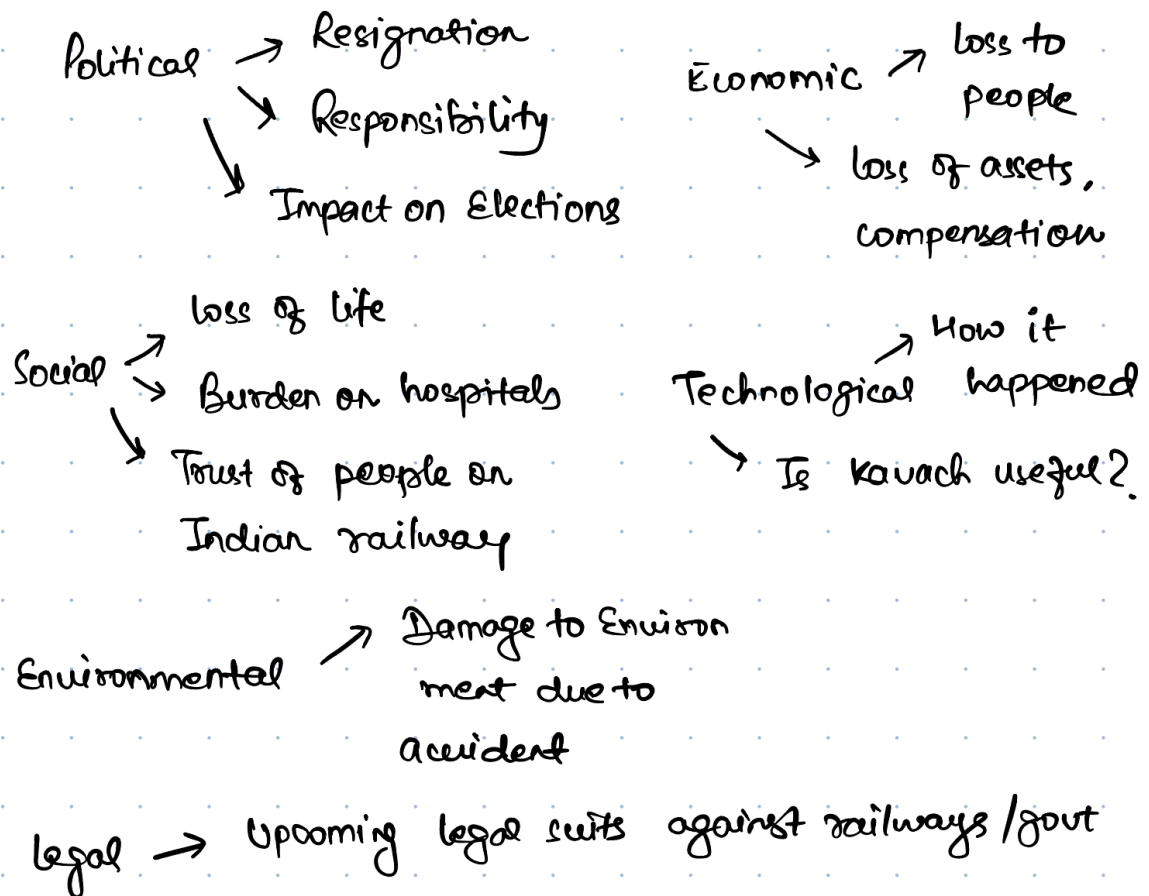 Political → Resignation
Responsibility
Impact on Elections
Economic → loss to
people
loss of assets,
compensation
Social → loss of life
Burden on hospitals
Trust of people on
Indian railway
Technological → How it
happened
Is Kavach useful?
Environmental → Damage to Environ
ment due to
accident
legal → Upcoming legal suits against railways/govt